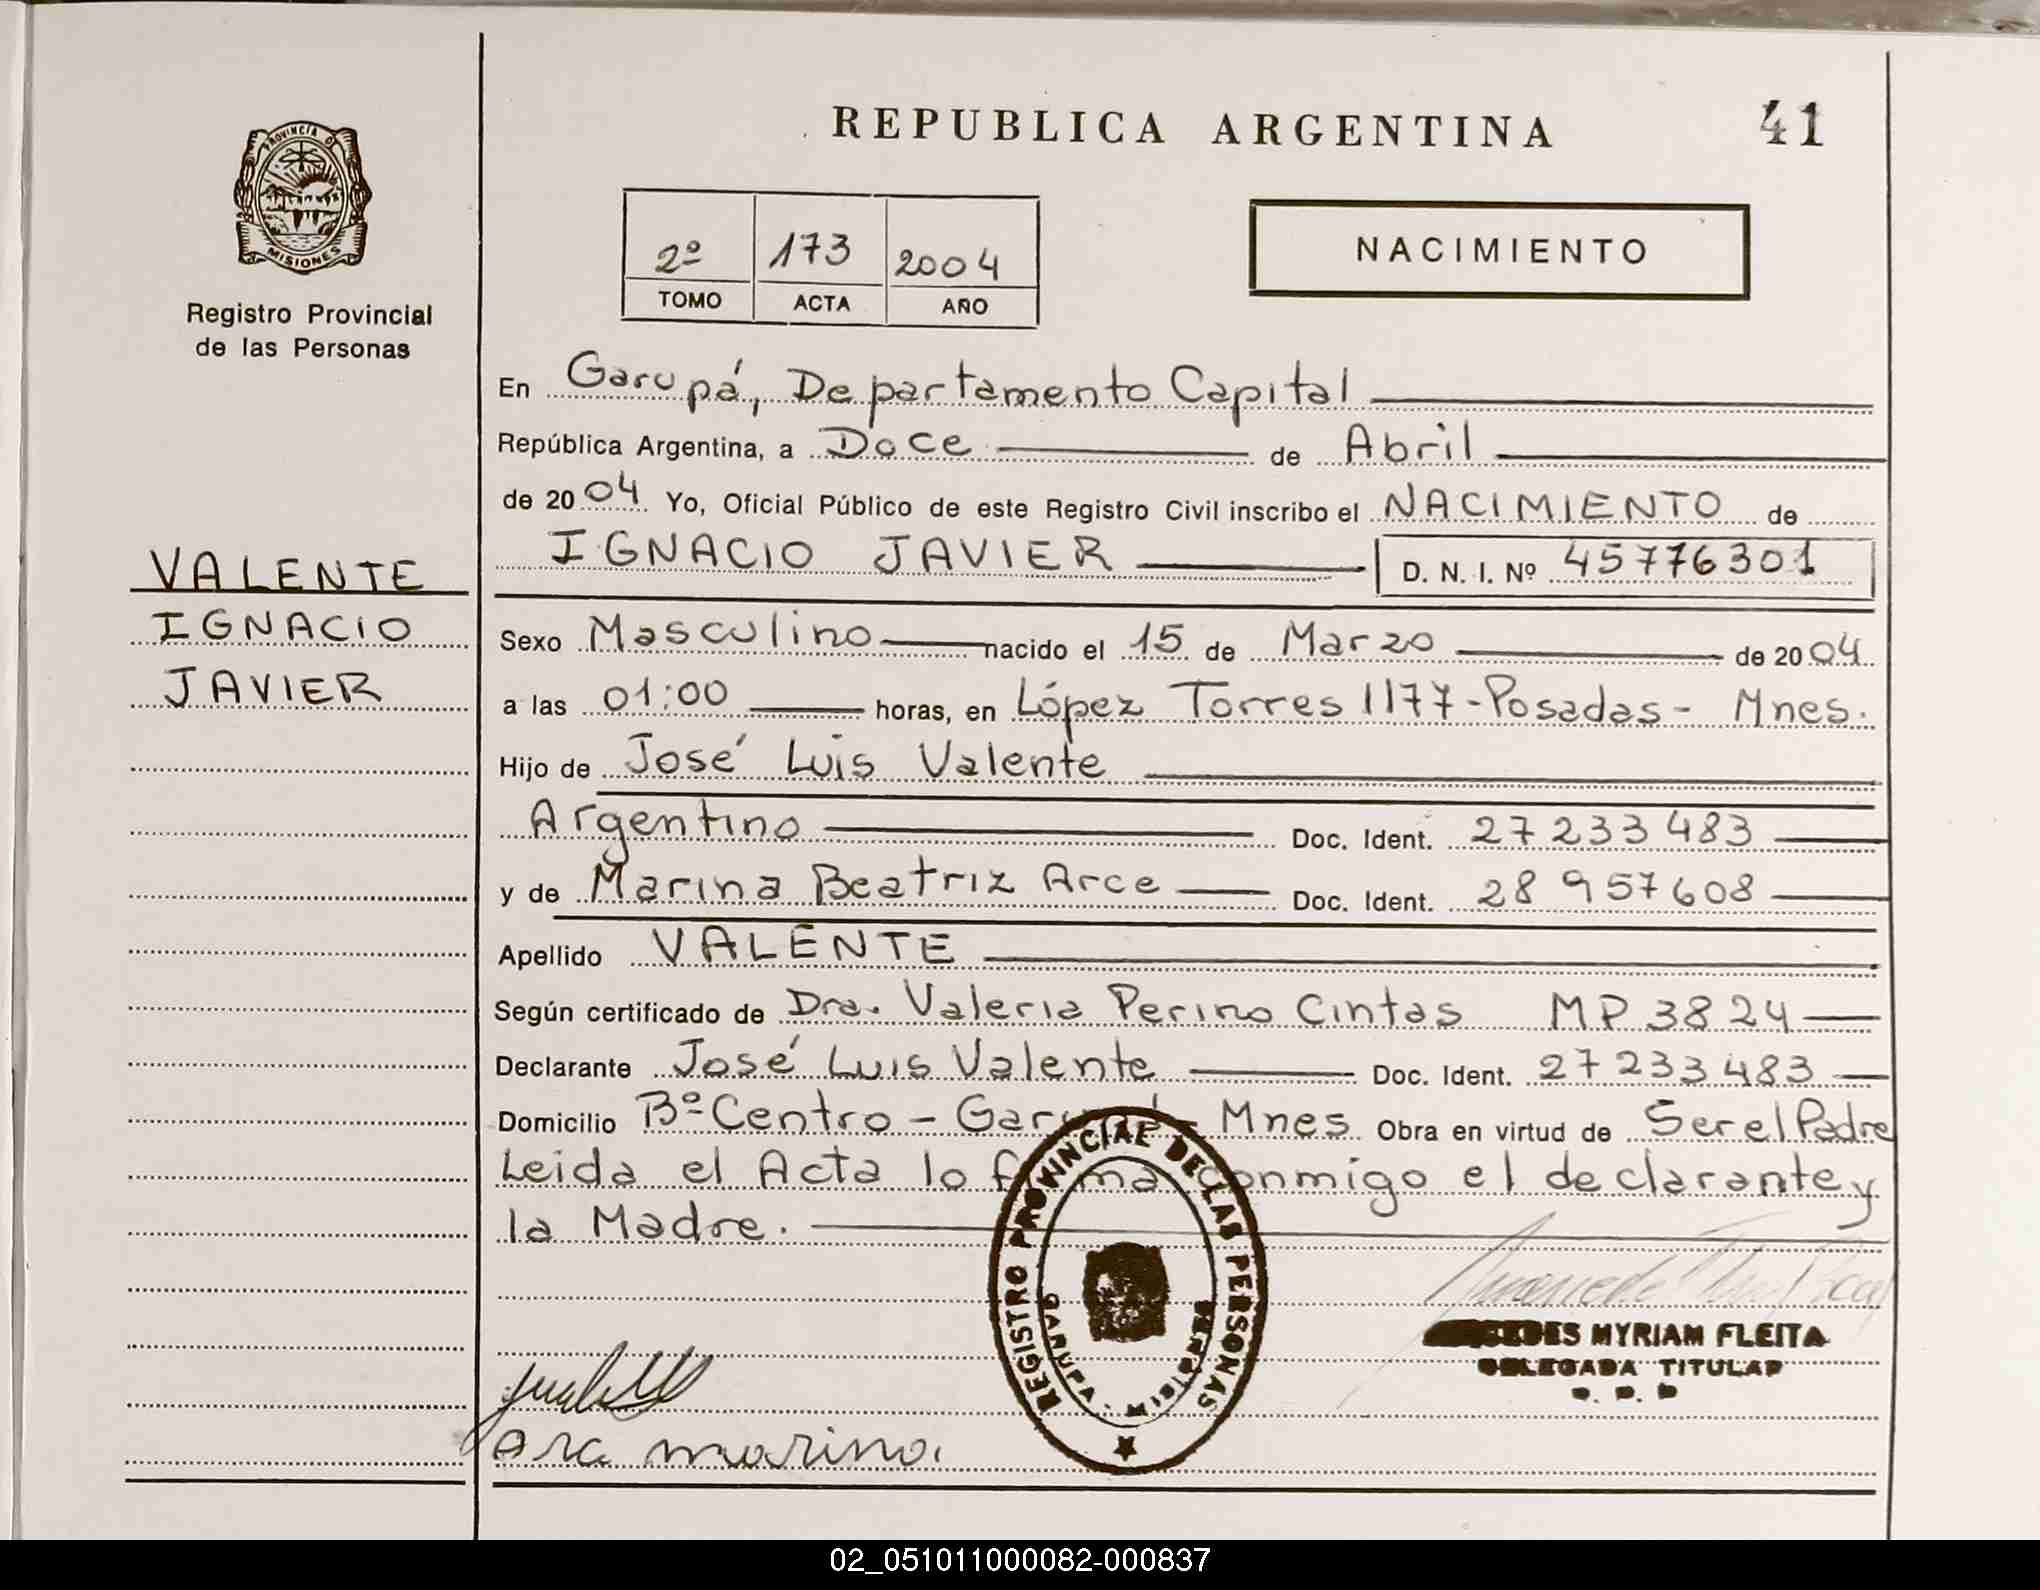 REPUBLICA ARGENTINA 41
PROVINCIA DE
MISIONES
Registro Provincial
de las Personas
2º 173 2004
TOMO ACTA AÑO
NACIMIENTO
En Garupá, Departamento Capital
República Argentina, a Doce de Abril
de 2004 Yo, Oficial Público de este Registro Civil inscribo el NACIMIENTO de
IGNACIO JAVIER D. N. I. Nº 45776301
VALENTE
IGNACIO
JAVIER
Sexo Masculino nacido el 15 de Marzo de 2004
a las 01:00 horas, en López Torres 1177-Posadas- Mnes.
Hijo de José Luis Valente
Argentino Doc. Ident. 27233483
y de Marina Beatriz Arce Doc. Ident. 28957608
Apellido VALENTE
Según certificado de Dra. Valeria Perino Cintas MP 3824
Declarante José Luis Valente Doc. Ident. 27233483
Domicilio Bº Centro - Garupá - Mnes Obra en virtud de Ser el Padre
Leida el Acta lo firma conmigo el declarante y
la Madre.
REGISTRO PROVINCIAL DE LAS PERSONAS
GARUPA
MYRIAM FLEITA
DELEGADA TITULAR
Arce marina.
02_051011000082-000837